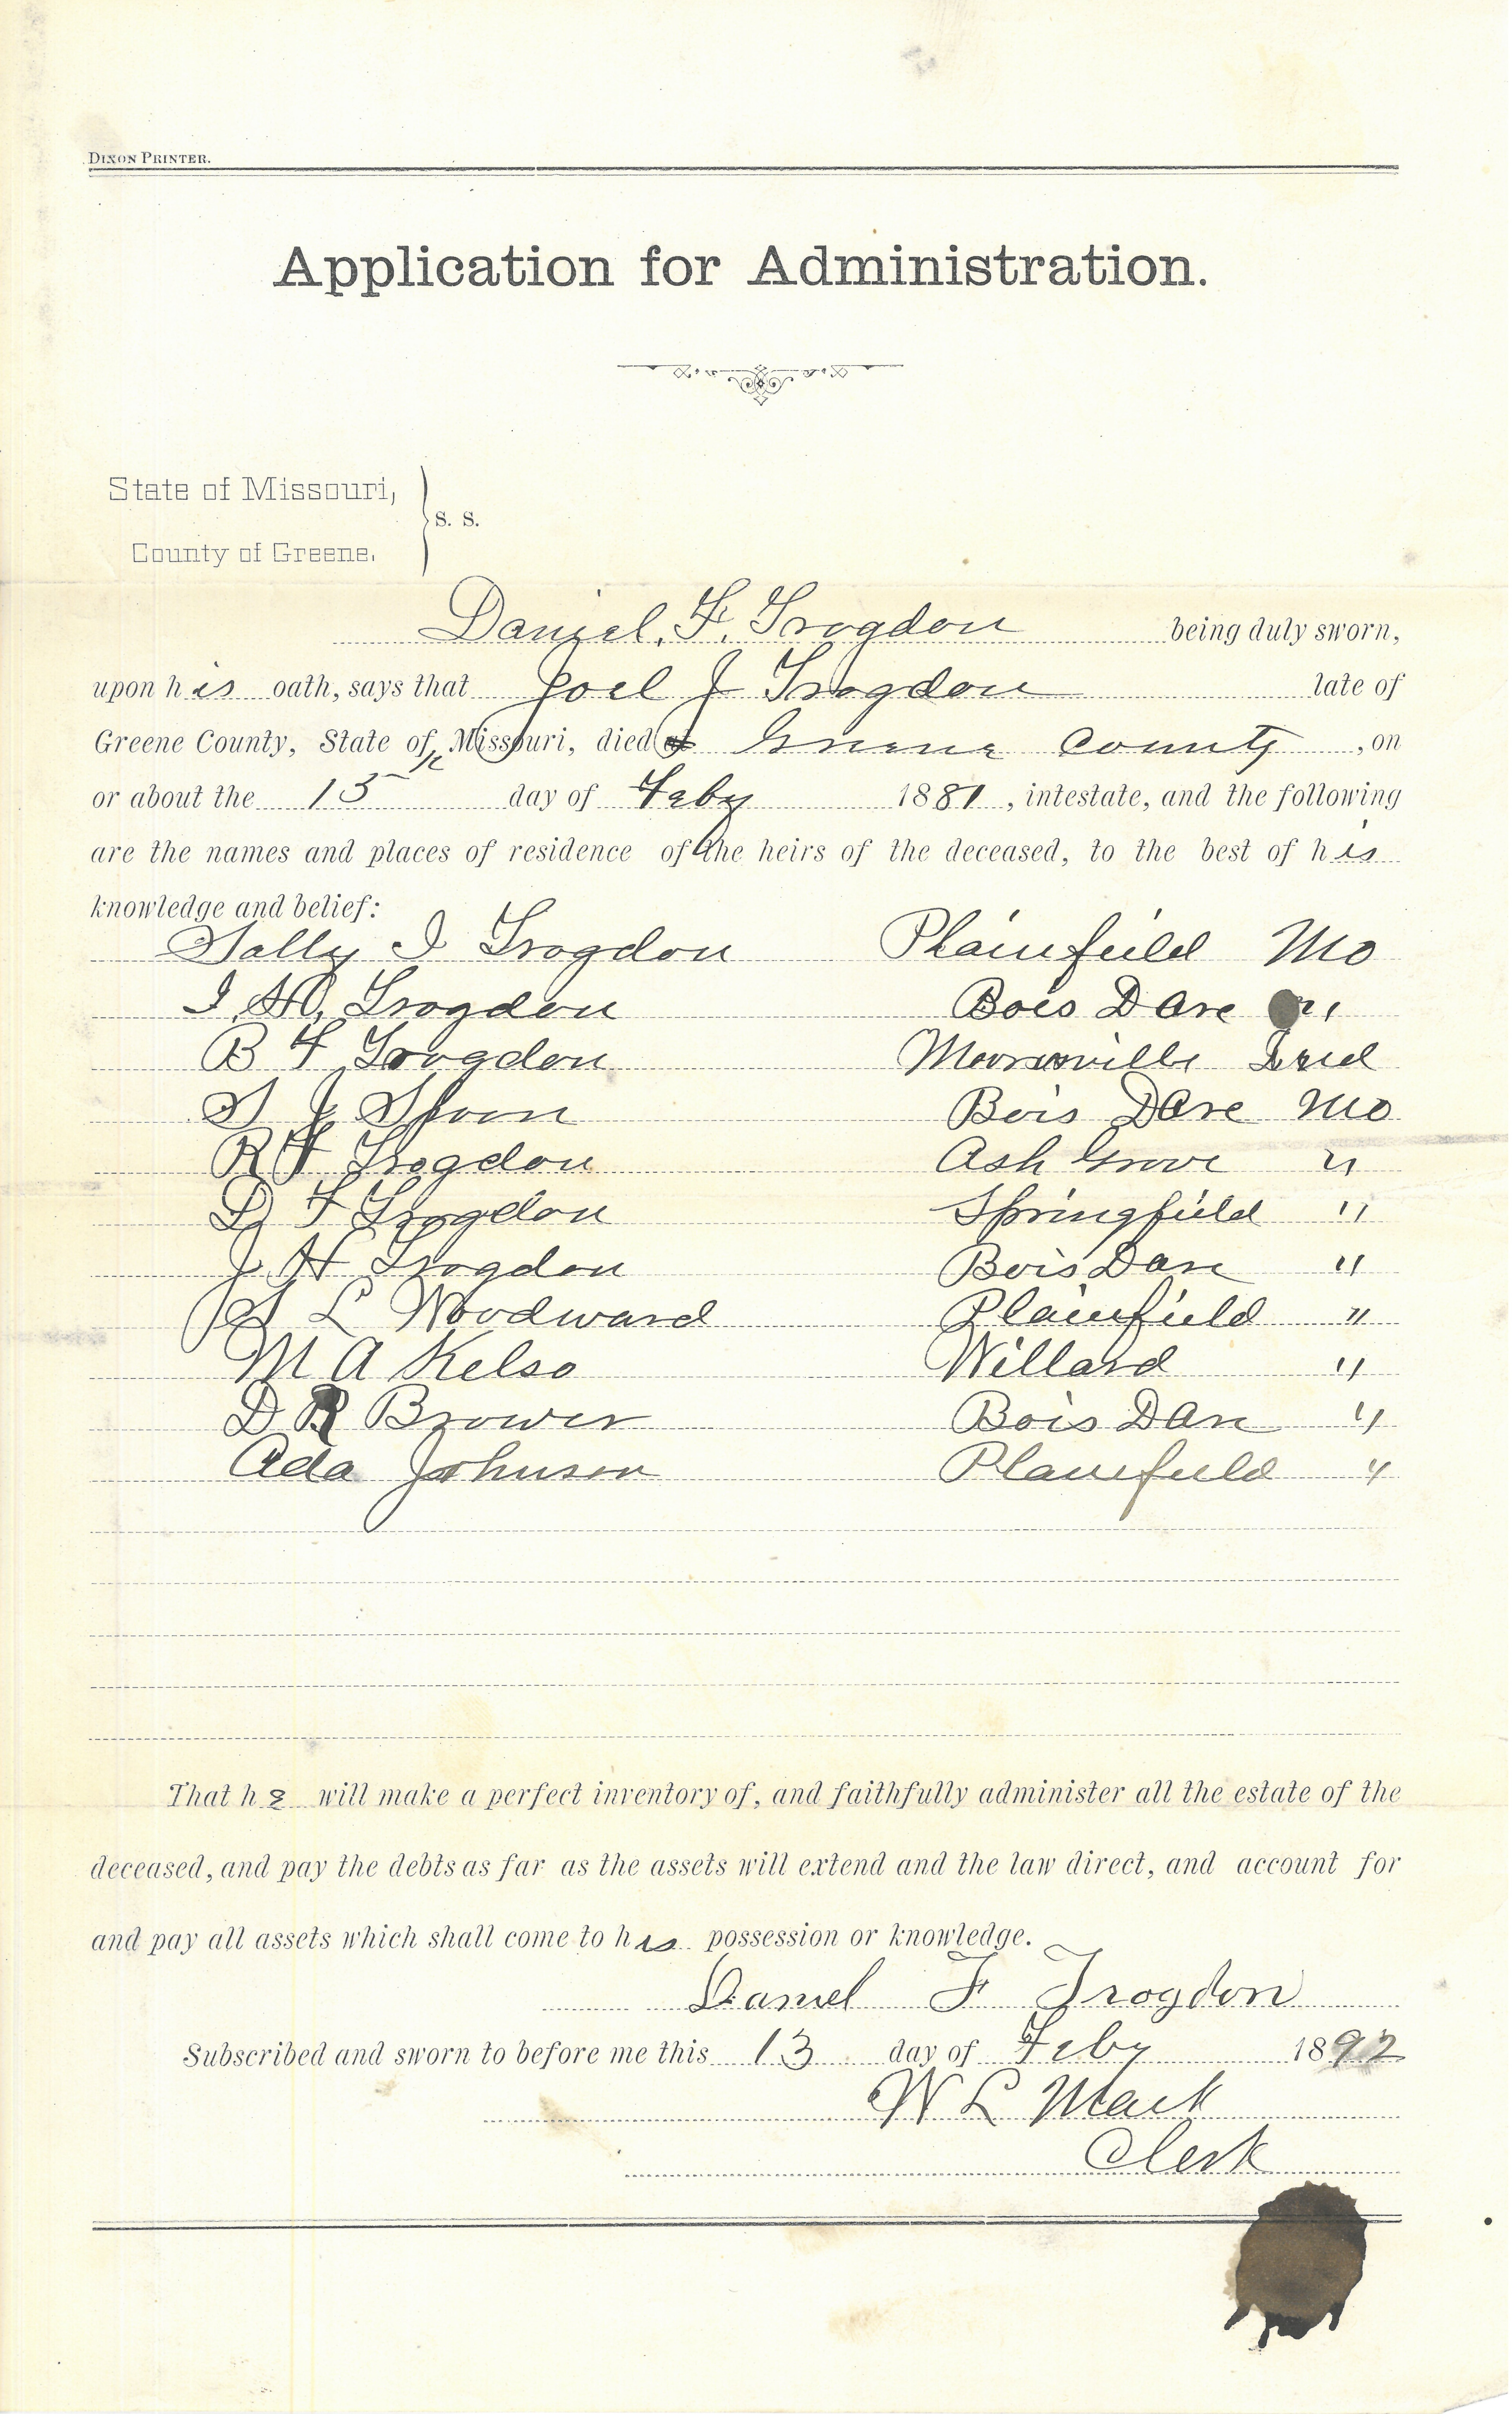 DIXON PRINTER.
Application for Administration.
State of Missouri,
S. S.
County of Greene.
Daniel. F. Trogdon being duly sworn,
upon his oath, says that Joel J Trogdon late of
Greene County, State of Missouri, died Greene County, on
or about the 13 day of Feby 1881, intestate, and the following
are the names and places of residence of the heirs of the deceased, to the best of his
knowledge and belief:
Sally I Trogdon Plainfield Mo
Trogdon Bois Dare
B F Trogdon Mooresville Ind
S J Spoon Bois Dare Mo
R F Trogdon Ash Grove "
D F Trogdon Springfield "
J H Trogdon Bois Darc "
S L Woodward Plainfield "
M A Kelso Willard "
D R Brower Bois Darc "
Ada Johnson Plainfield "
That he will make a perfect inventory of, and faithfully administer all the estate of the
deceased, and pay the debts as far as the assets will extend and the law direct, and account for
and pay all assets which shall come to his possession or knowledge.
Daniel F Trogdon
Subscribed and sworn to before me this 13 day of Feby 1892
W L Mack
Clerk